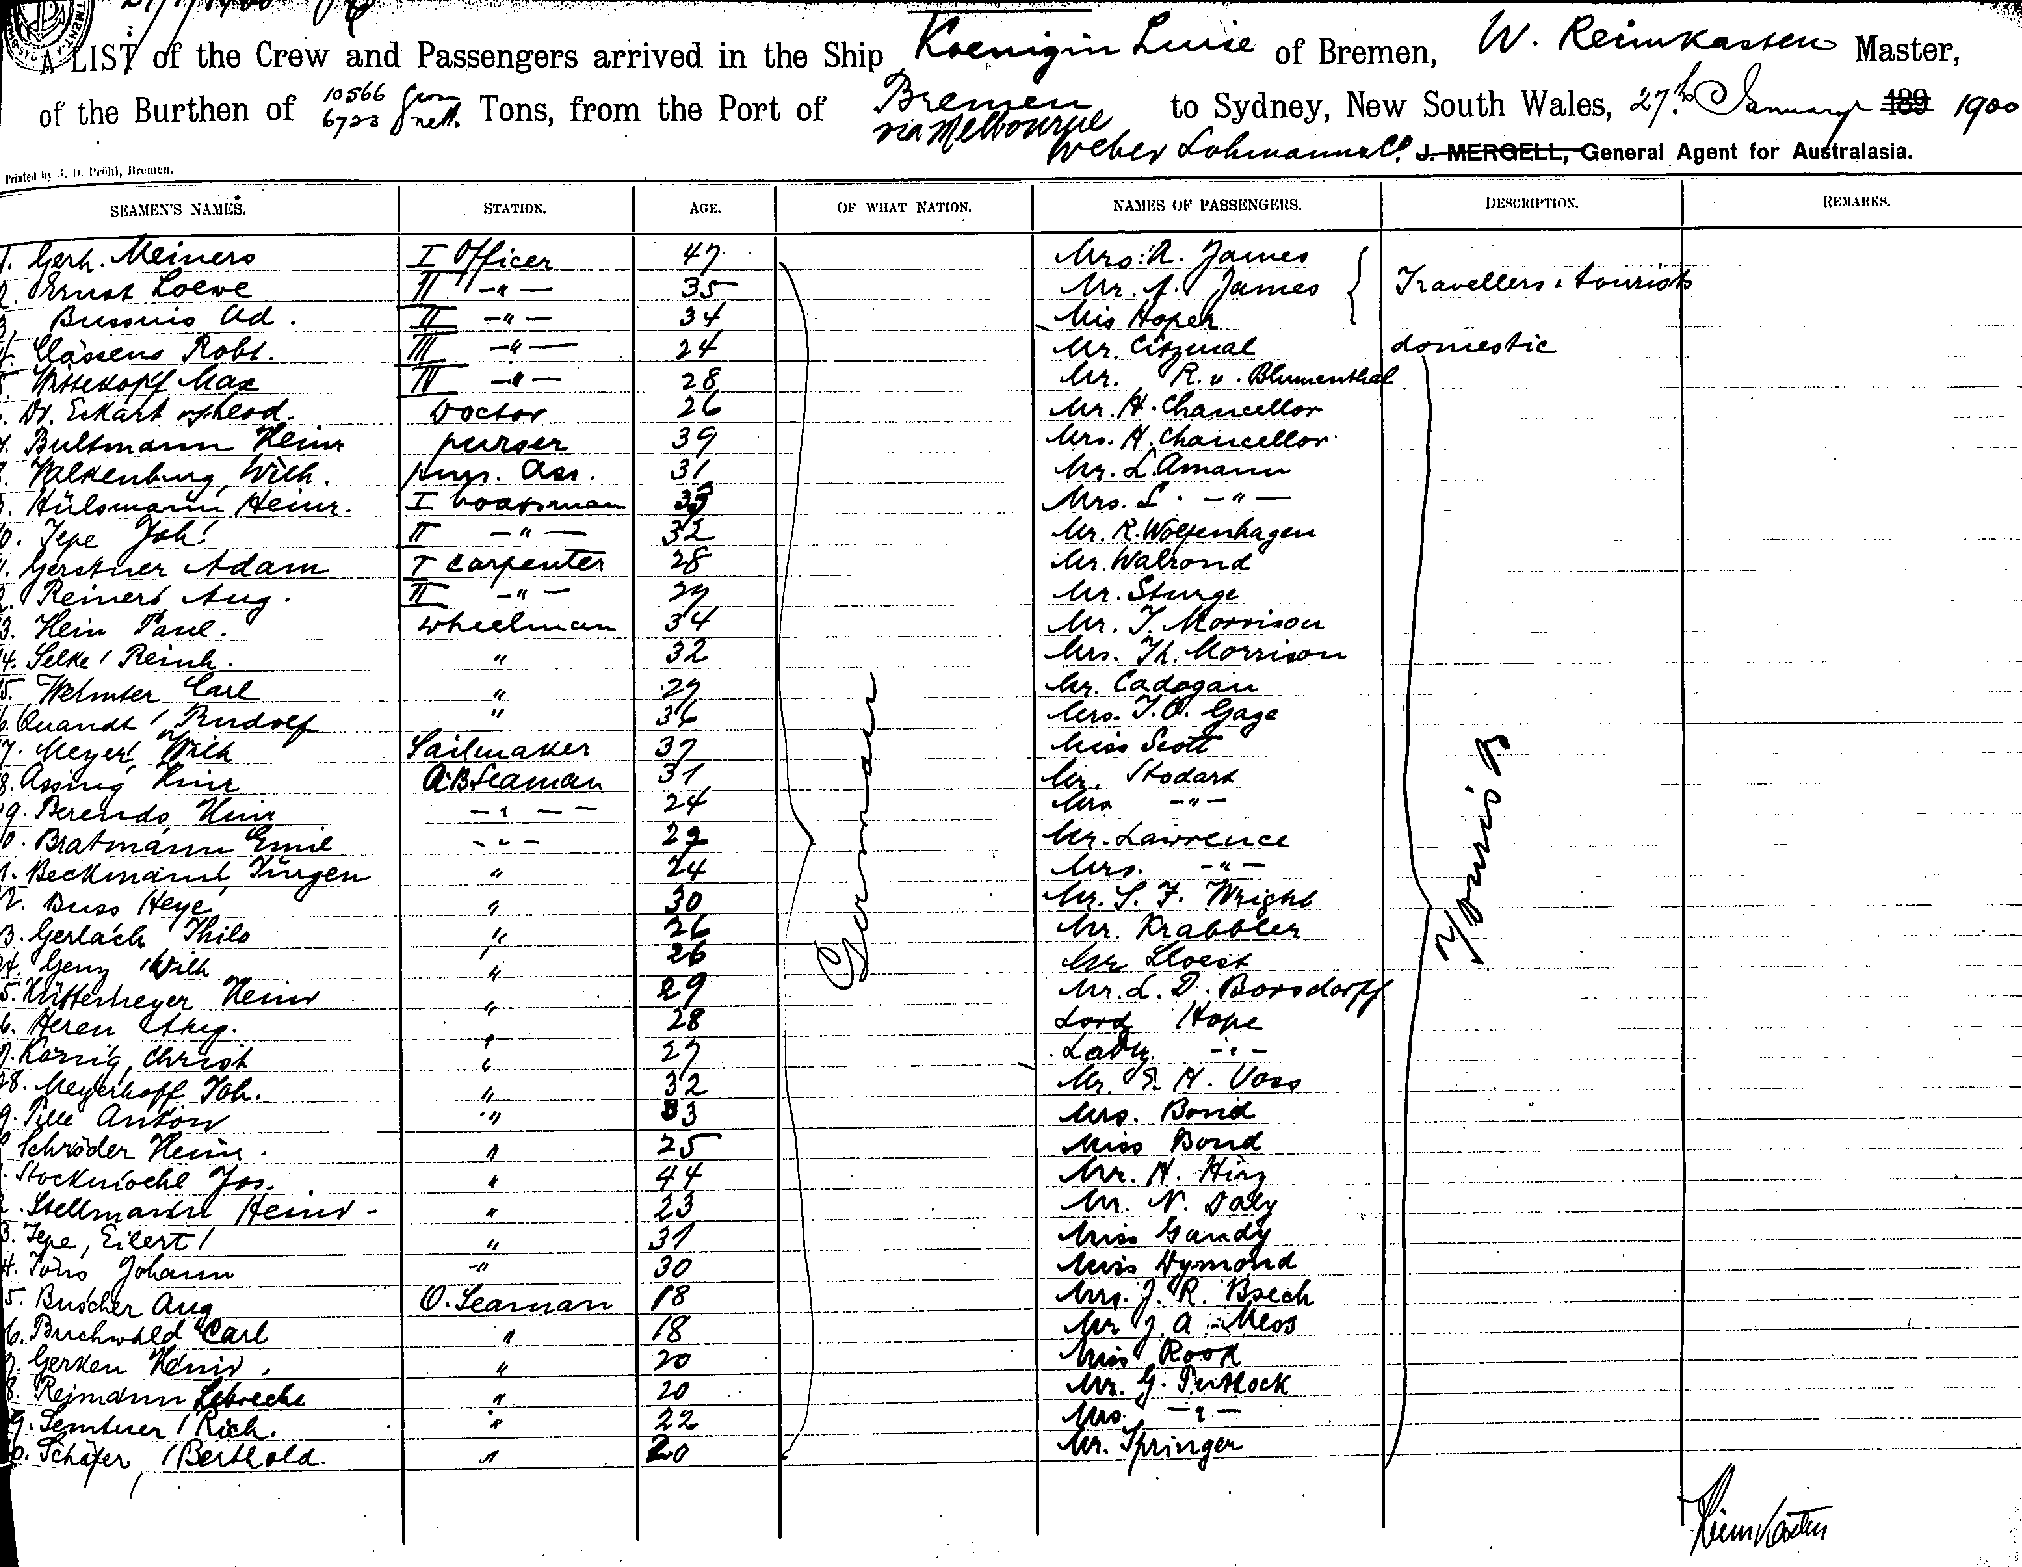 A LIST of the Crew and Passengers arrived in the Ship Koenigin Luise of Bremen, W. Reimkasten Master,
of the Burthen of 10566 gross 6723 nett. Tons, from the Port of Bremen via Melbourne to Sydney, New South Wales, 27th January 189 1900
Weber Lohmann & Co. J. MERGELL, General Agent for Australasia.
Printed by Bremen.
SEAMEN'S NAMES. STATION. AGE. OF WHAT NATION. NAMES OF PASSENGERS. DESCRIPTION. REMARKS.
1. Gerh. Meiners I Officer 47 Mrs. A. James
2. Ernst Loewe II -"- 35 Mr. A. James Travellers & tourists
3. Ad. II -"- 34 Miss Hoper
4. Classens Robt. III -"- 24 Mr. domestic
5. Max IV -"- 28 Mr. R. v. Blumenthal
Dr. Eckart Doctor 26 Mr. H. Chancellor
7. Bultmann Heinr purser 39 Mrs. H. Chancellor
8. Valkenburg, Wilh. purs. Ass. 31 Mr. L. Amann
9. Hülsmann Heinr. I boatsman 33 Mrs. L. -"-
10. Tepe Joh. II -"- 32 Mr. R. Wolfenhagen
11. Gerstner Adam I Carpenter 28 Mr. Walrond
12. Reiners Aug. II -"- 27 Mr. Sturge
13. Hein Paul. Wheelman 34 Mr. T. Morrison
14. Selke, Reinh. " 32 Mrs. Th. Morrison
15. Carl " 27 Mr. Cadogan
16. Quandt, Rudolf " 36 Mrs. T. O. Gage
17. Meyer, Wilh Sailmaker 37 Miss Scott
18. Assing Hinr A.B Seaman 31 Mr. Stodart
19. Berends, Hinr -"- 24 Mrs -"-
20. Bratmann Emil -"- 27 Mr. Lawrence
21. Beckmann, Jürgen " 24 Mrs. -"-
22. Buss Heye " 30 Mr. S. F. Wright
23. Gerlach Thilo " 26 Mr. Krabbler
24. Genz Wilh " 26 Mr
25. Heinr " 29 Mr. L. D. Borsdorff
26. Heren Aug. " 28 Lord Hope
27. König, Christ " 27 Lady -"-
28. Meyerhoff Joh. " 32 Mr. E. H. Voss
29. Pille Anton " 33 Mrs. Bond
Schröder Heinr. " 25 Miss Bond
Jos. " 44 Mr. H. Hinz
Stellmann Heinr - " 23 Mr. N. Daly
3. Tepe, Eilert " 31 Miss Gandy
4. Töns Johann -"- 30 Miss Dymond
5. Buscher Aug O. Seaman 18 Mrs. J. R. Beech
6. Buchwald Carl " 18 Mr J. A.
7. Gerken Heinr. " 20 Miss Rook
8. Rejmann Lebrecht " 20 Mr. G. Puttock
9. Lentner, Rich. " 22 Mrs. -"-
0. Schäfer, Berthold " 20 Mr. Springer
German
Tourists
Reimkasten